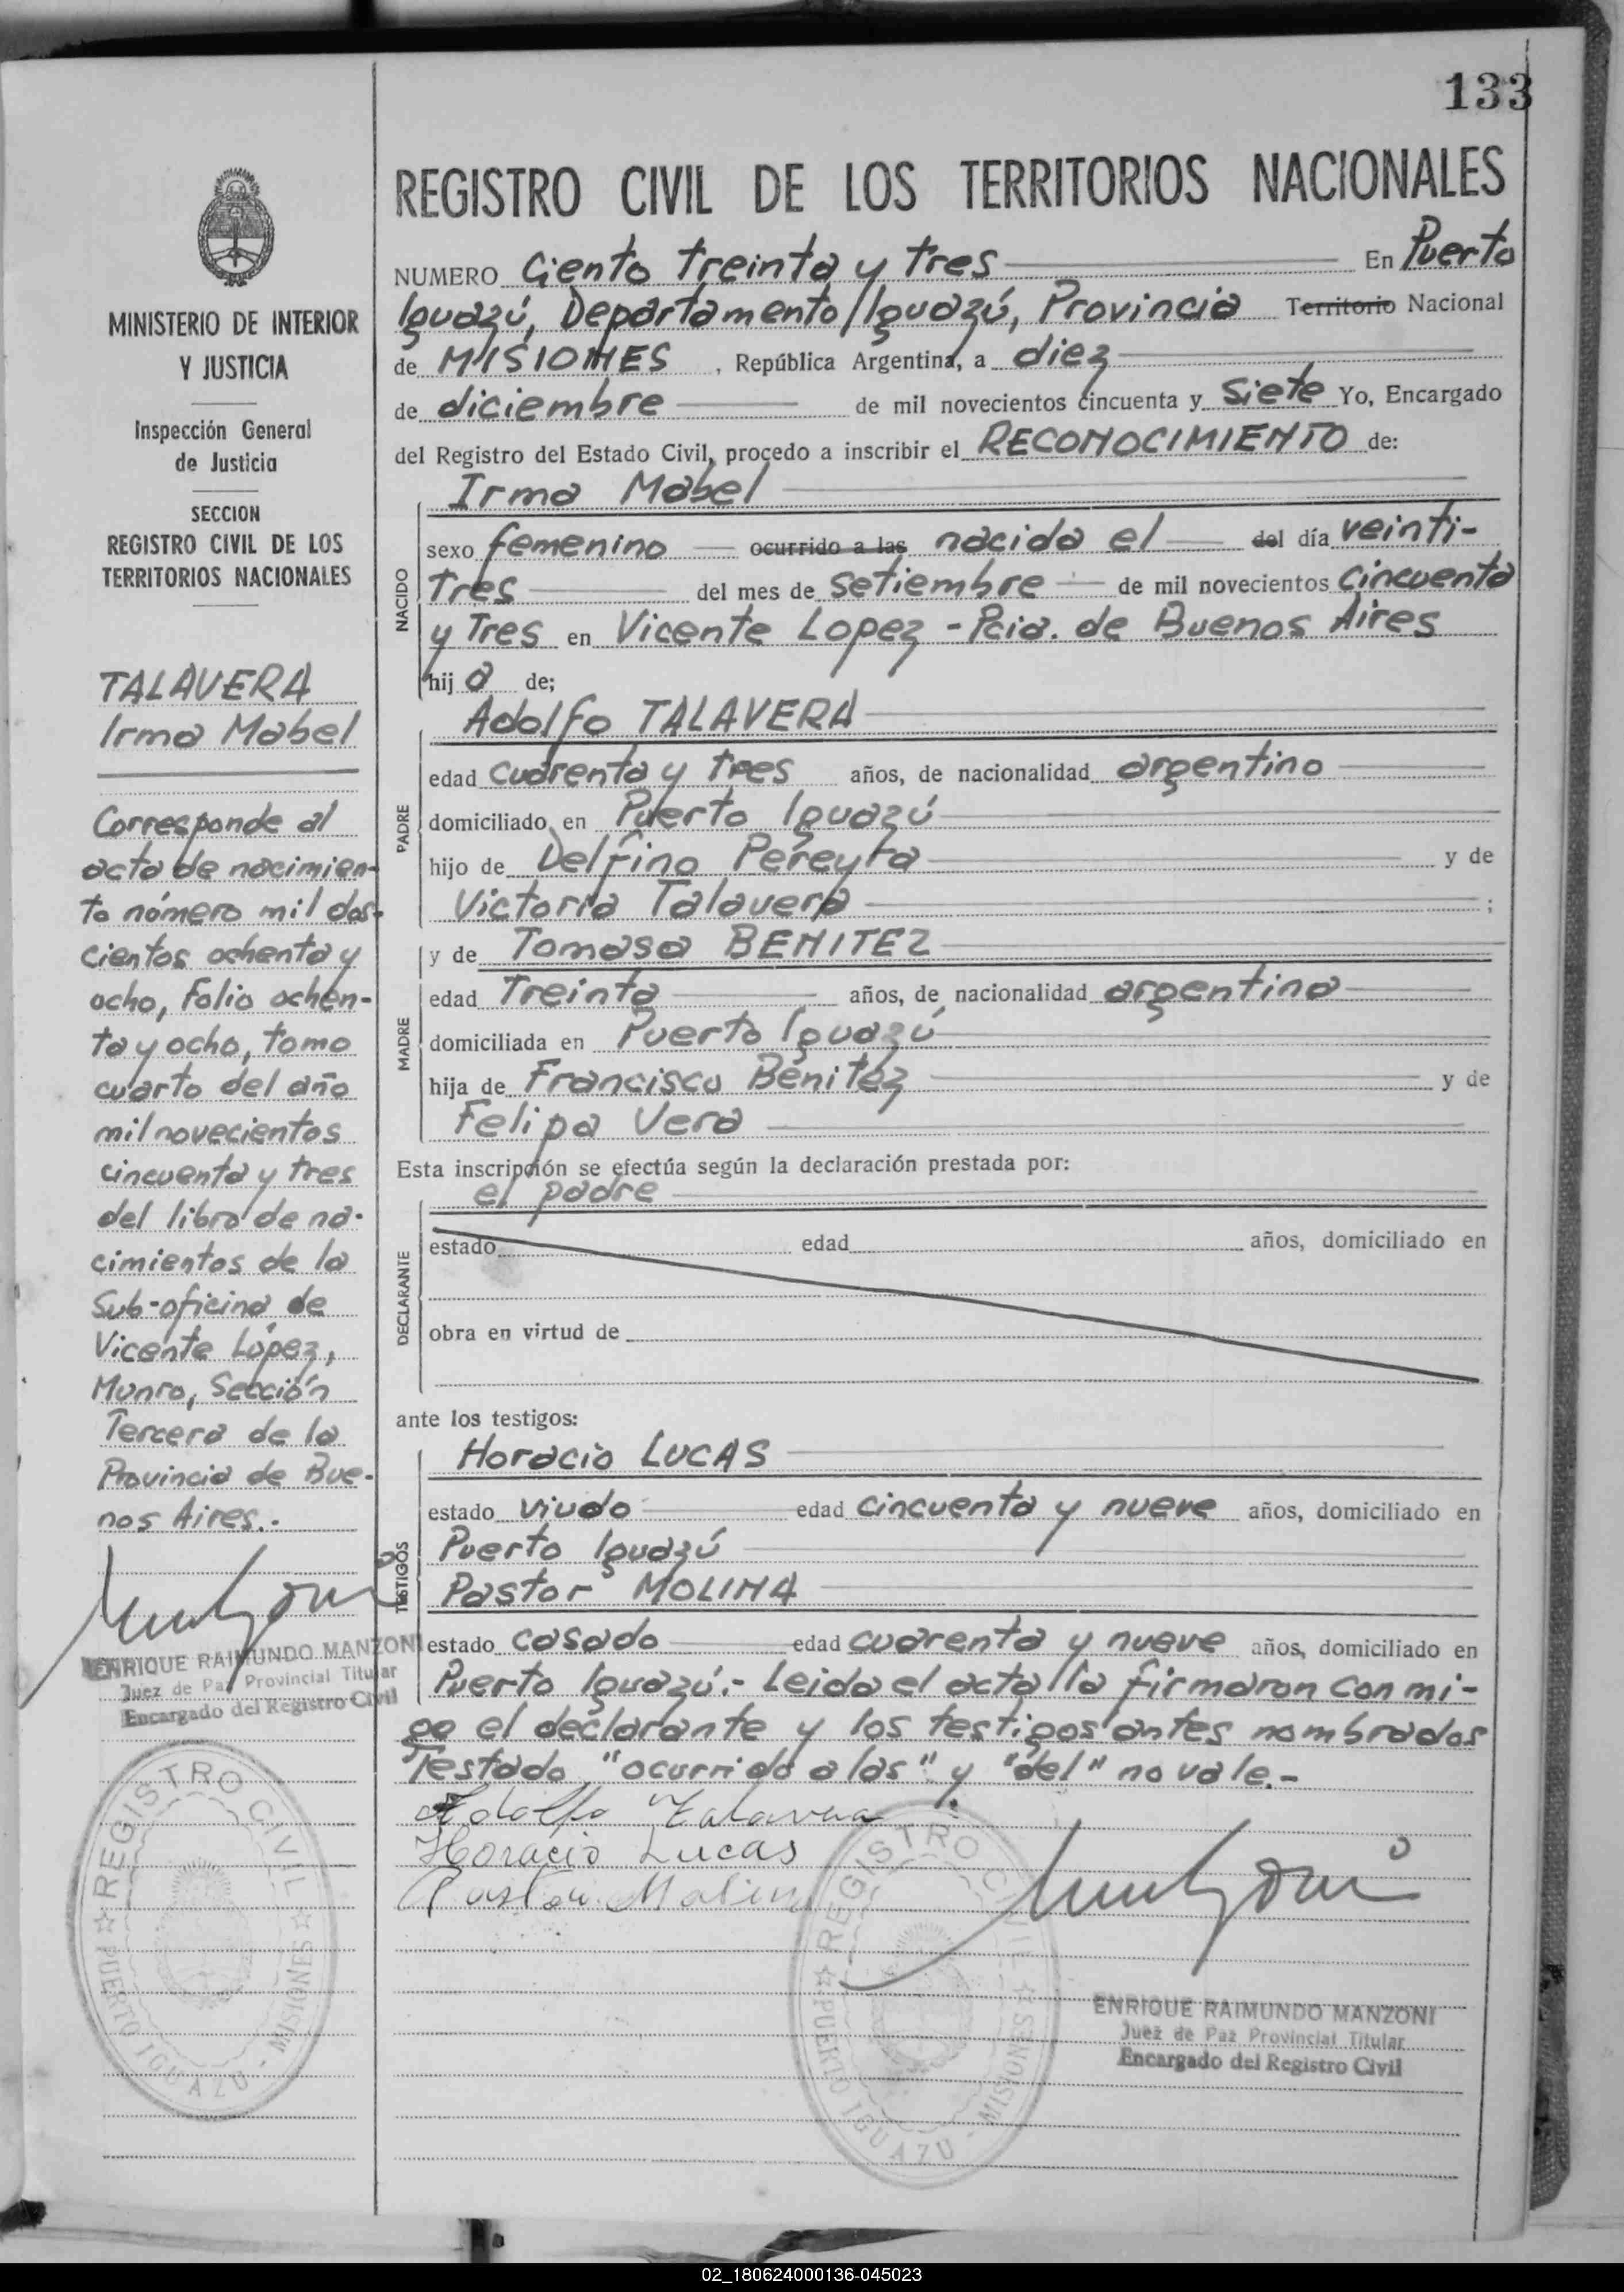 133
REGISTRO CIVIL DE LOS TERRITORIOS NACIONALES
NUMERO Ciento treinta y tres En Puerto
Iguazú, Departamento Iguazú, Provincia Territorio Nacional
de MISIONES , República Argentina, a diez
de diciembre de mil novecientos cincuenta y siete Yo, Encargado
del Registro del Estado Civil, procedo a inscribir el RECONOCIMIENTO de:
Irma Mabel
NACIDO
sexo femenino ocurrido a las nacida el del día veinti-
tres del mes de setiembre de mil novecientos cincuenta
y tres en Vicente Lopez - Pcia. de Buenos Aires
hij a de;
Adolfo TALAVERA
PADRE
edad cuarenta y tres años, de nacionalidad argentino
domiciliado en Puerto Iguazú
hijo de Delfino Pereyra y de
Victoria Talavera ;
y de Tomasa BENITEZ
MADRE
edad Treinta años, de nacionalidad argentina
domiciliada en Puerto Iguazú
hija de Francisco Benitez y de
Felipa Vera
Esta inscripción se efectúa según la declaración prestada por:
el padre
DECLARANTE
estado edad años, domiciliado en
obra en virtud de
ante los testigos:
Horacio LUCAS
TESTIGOS
estado viudo edad cincuenta y nueve años, domiciliado en
Puerto Iguazú
Pastor MOLINA
estado casado edad cuarenta y nueve años, domiciliado en
Puerto Iguazú.- Leida el acta la firmaron con mi-
go el declarante y los testigos antes nombrados
Testado "ocurrido a las" y "del" no vale.-
Adolfo Talavera
Horacio Lucas
Pastor Molina
REGISTRO CIVIL
PUERTO IGUAZU - MISIONES
ENRIQUE RAIMUNDO MANZONI
Juez de Paz Provincial Titular
Encargado del Registro Civil
MINISTERIO DE INTERIOR
Y JUSTICIA
Inspección General
de Justicia
SECCION
REGISTRO CIVIL DE LOS
TERRITORIOS NACIONALES
TALAVERA
Irma Mabel
Corresponde al
acta de nacimien-
to número mil dos-
cientos ochenta y
ocho, Folio ochen-
ta y ocho, tomo
cuarto del año
mil novecientos
cincuenta y tres
del libro de na-
cimientos de la
Sub-oficina de
Vicente López,
Munro, Sección
Tercera de la
Provincia de Bue-
nos Aires.-
ENRIQUE RAIMUNDO MANZONI
Juez de Paz Provincial Titular
Encargado del Registro Civil
REGISTRO CIVIL
PUERTO IGUAZU - MISIONES
02_180624000136-045023